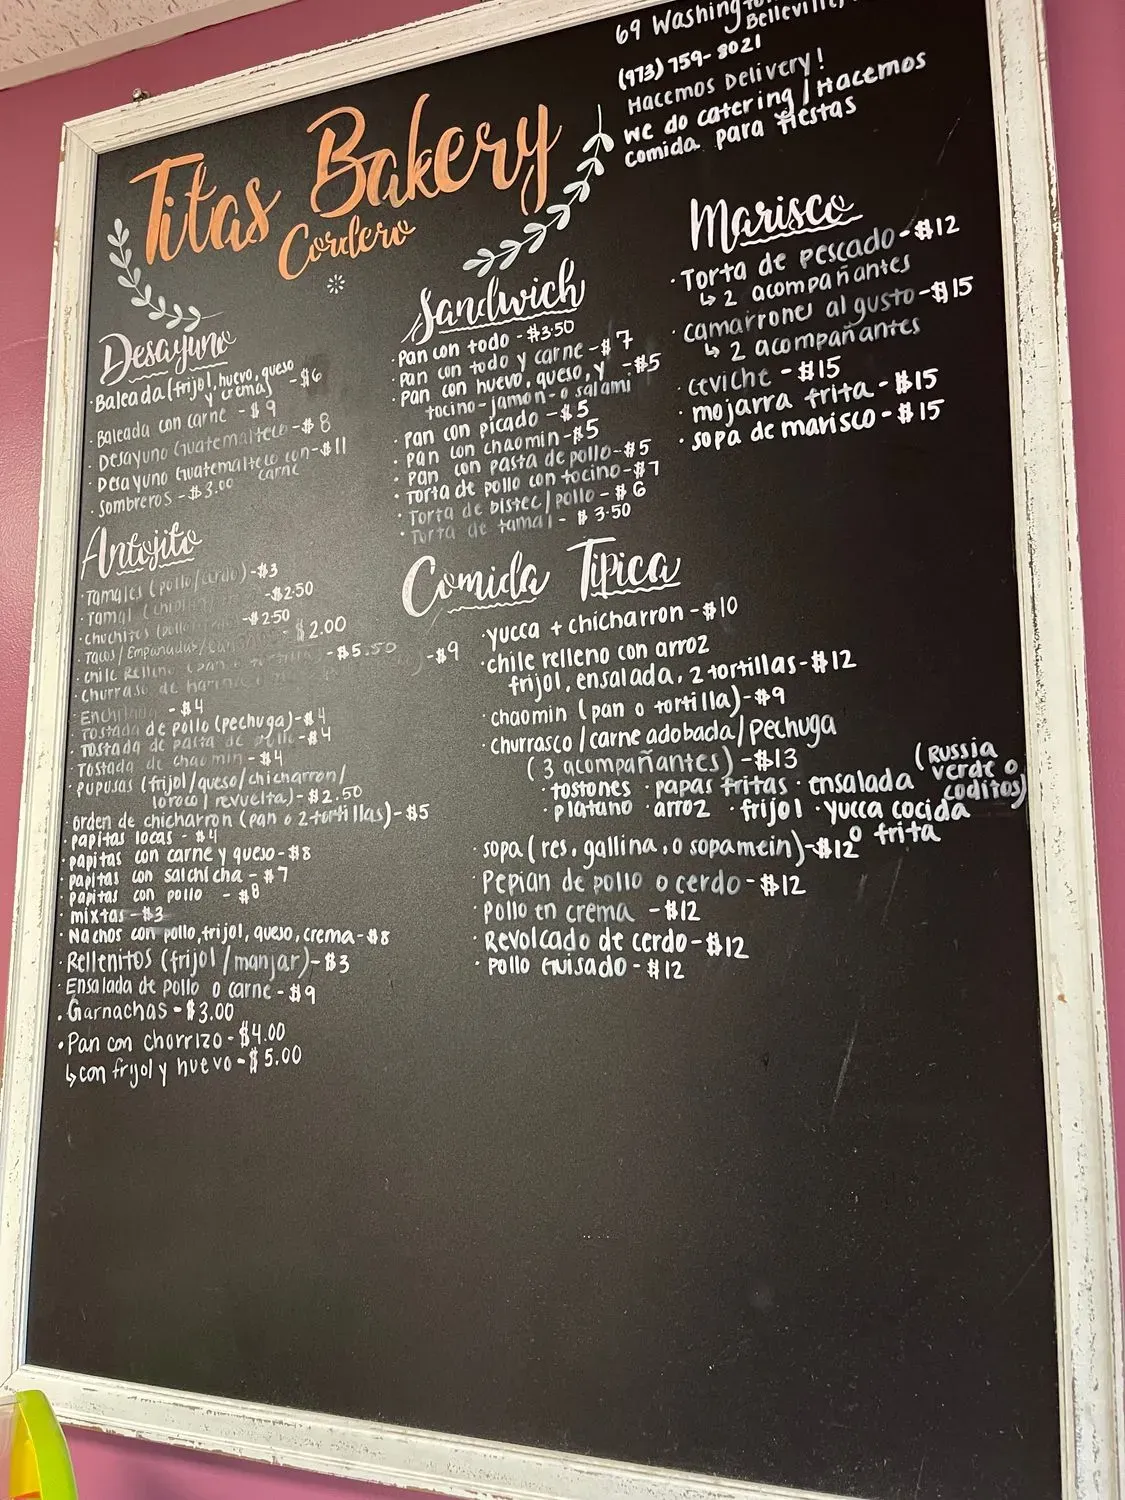 69 Washington
Belleville,
(973) 759-8021
Hacemos Delivery!
we do catering / Hacemos
comida para fiestas
Titas Bakery
Cordero
Desayuno
· Baleada (frijol, huevo, queso
y crema) - $6
· Baleada con carne - $9
· Desayuno Guatemalteco - $8
· Desayuno Guatemalteco con - $11
carne
· Sombreros - $3.00
Antojito
· Tamales (pollo/cerdo) - $3
· Tamal ( - $2.50
· chuchitos (pollo - $2.50
· Tacos / Empanadas / - $2.00
· chile Relleno (pan o tortilla) - $5.50
· churrasco de harina - $9
· Enchilada - $4
· Tostada de pollo (pechuga) - $4
· Tostada de pasta de pollo - $4
· Tostada de chaomin - $4
· pupusas (frijol/queso/chicharron/
loroco/revuelta) - $2.50
· orden de chicharron (pan o 2 tortillas) - $5
· papitas locas - $4
· papitas con carne y queso - $8
· papitas con salchicha - $7
· papitas con pollo - $8
· mixtas - $3
· Nachos con pollo, frijol, queso, crema - $8
· Rellenitos (frijol/manjar) - $3
· Ensalada de pollo o carne - $9
· Garnachas - $3.00
· Pan con chorrizo - $4.00
↳ con frijol y huevo - $5.00
Sandwich
· Pan con todo - $3.50
· Pan con todo y carne - $7
· Pan con huevo, queso, y - $5
tocino - jamon - o salami
· Pan con picado - $5
· Pan con chaomin - $5
· Pan con pasta de pollo - $5
· Torta de pollo con tocino - $7
· Torta de bistec/pollo - $6
· Torta de tamal - $3.50
Marisco
· Torta de pescado - $12
↳ 2 acompañantes
· camarrones al gusto - $15
↳ 2 acompañantes
· ceviche - $15
· mojarra frita - $15
· sopa de marisco - $15
Comida Tipica
· yucca + chicharron - $10
· chile relleno con arroz
frijol, ensalada, 2 tortillas - $12
· chaomin (pan o tortilla) - $9
· churrasco / carne adobada / pechuga
(3 acompañantes) - $13
· tostones · papas fritas · ensalada (Russia
verde o
coditos)
· platano · arroz · frijol · yucca cocida
o frita
· sopa (res, gallina, o sopamein) - $12
· Pepian de pollo o cerdo - $12
· Pollo en crema - $12
· Revolcado de cerdo - $12
· Pollo Guisado - $12